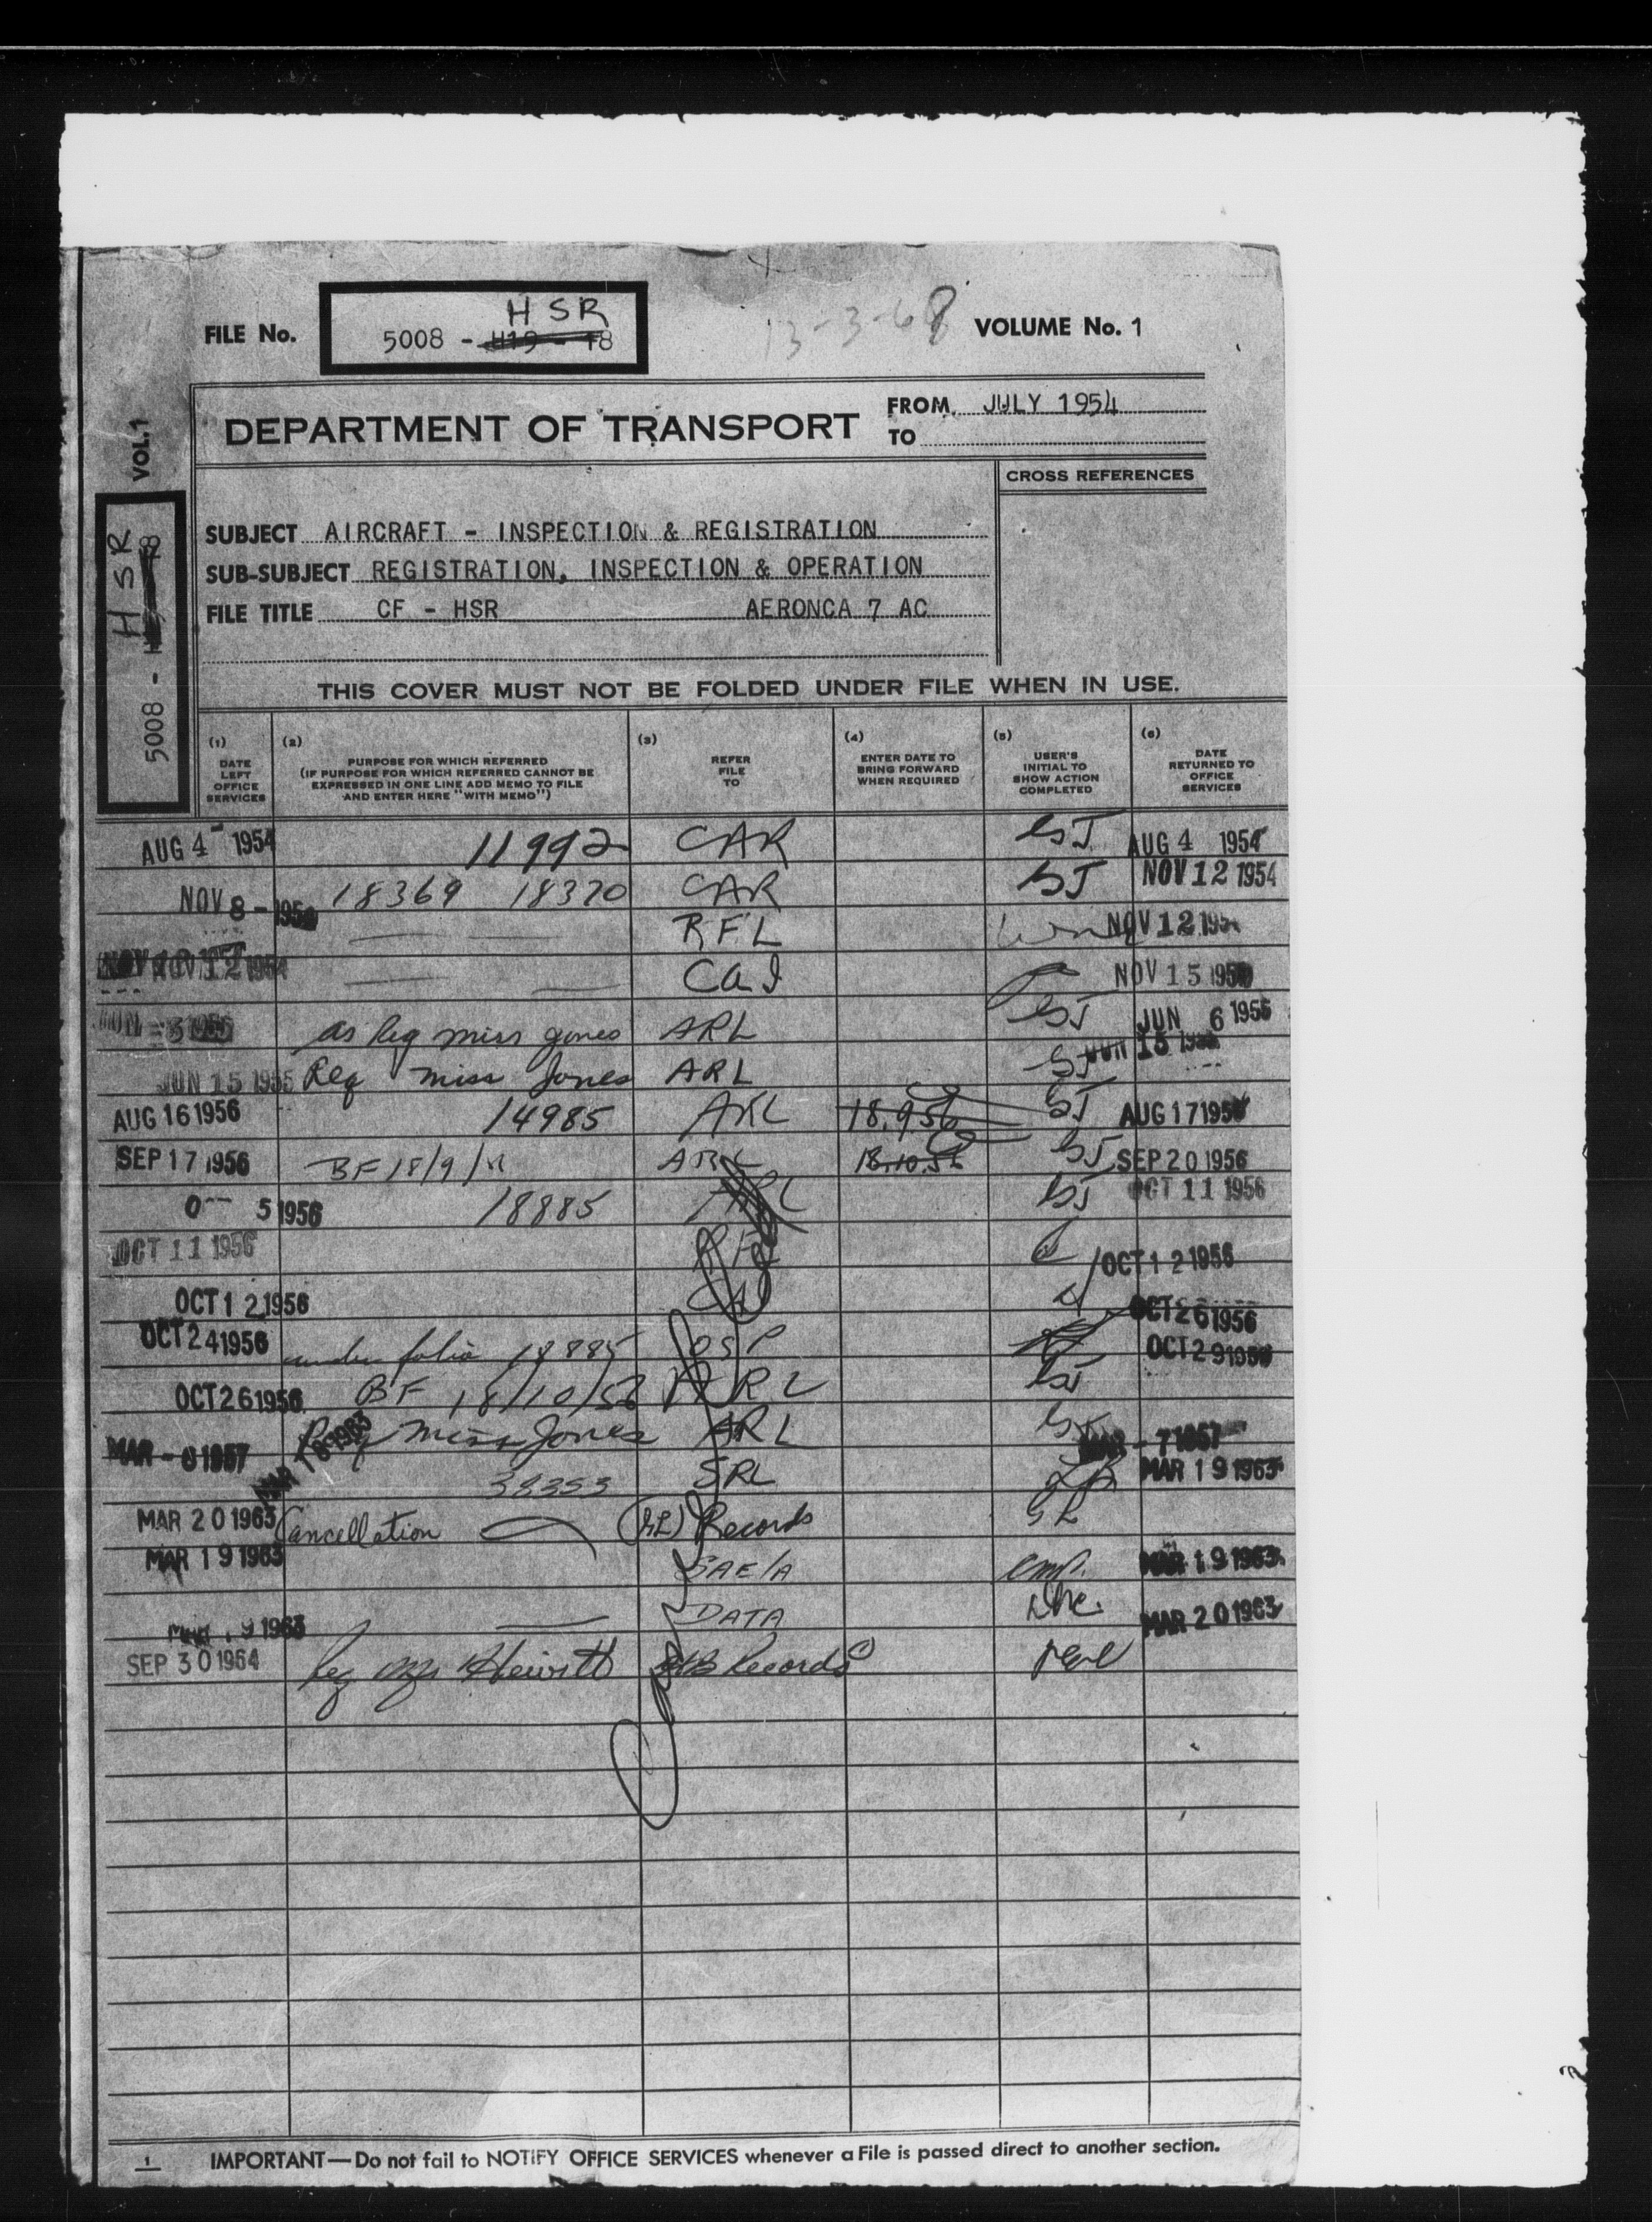 H S R
FILE No. 5008 - H19 - 18 13-3-68 VOLUME No. 1
DEPARTMENT OF TRANSPORT
FROM JULY 1954
TO
VOL.1
H S R
5008 -
CROSS REFERENCES
SUBJECT AIRCRAFT - INSPECTION & REGISTRATION
SUB-SUBJECT REGISTRATION, INSPECTION & OPERATION
FILE TITLE CF - HSR AERONCA 7 AC
THIS COVER MUST NOT BE FOLDED UNDER FILE WHEN IN USE.
(1) DATE LEFT OFFICE SERVICES
(2) PURPOSE FOR WHICH REFERRED
(IF PURPOSE FOR WHICH REFERRED CANNOT BE
EXPRESSED IN ONE LINE ADD MEMO TO FILE
AND ENTER HERE "WITH MEMO")
(3) REFER FILE TO
(4) ENTER DATE TO BRING FORWARD WHEN REQUIRED
(5) USER'S INITIAL TO SHOW ACTION COMPLETED
(6) DATE RETURNED TO OFFICE SERVICES
AUG 4 1954 11992 CAR AUG 4 1954
NOV 8 - 1954 18369 18370 CAR NOV 12 1954
RFL NOV 12 1954
NOV 12 1954 CAI NOV 15 1954
as Req Miss Jones ARL JUN 6 1955
JUN 15 1955 Req Miss Jones ARL JUN 15 1955
AUG 16 1956 14985 ARL 18.9.56 AUG 17 1956
SEP 17 1956 BF 18/9/56 ARL 18.10.56 SEP 20 1956
5 1956 18885 ARL OCT 11 1956
OCT 11 1956 RFL OCT 12 1956
OCT 12 1956 CAI OCT 26 1956
OCT 24 1956 under folio 18885 OSP OCT 29 1956
OCT 26 1956 BF 18/10/56 ARL
MAR - 8 1957 Req Miss Jones ARL MAR - 7 1957
38353 SRL MAR 19 1963
MAR 20 1963 Cancellation Records
MAR 19 1963 SAE/A MAR 19 1963
MAR 19 1963 DATA MAR 20 1963
SEP 30 1964 Req Hewitt Records
1 IMPORTANT—Do not fail to NOTIFY OFFICE SERVICES whenever a File is passed direct to another section.